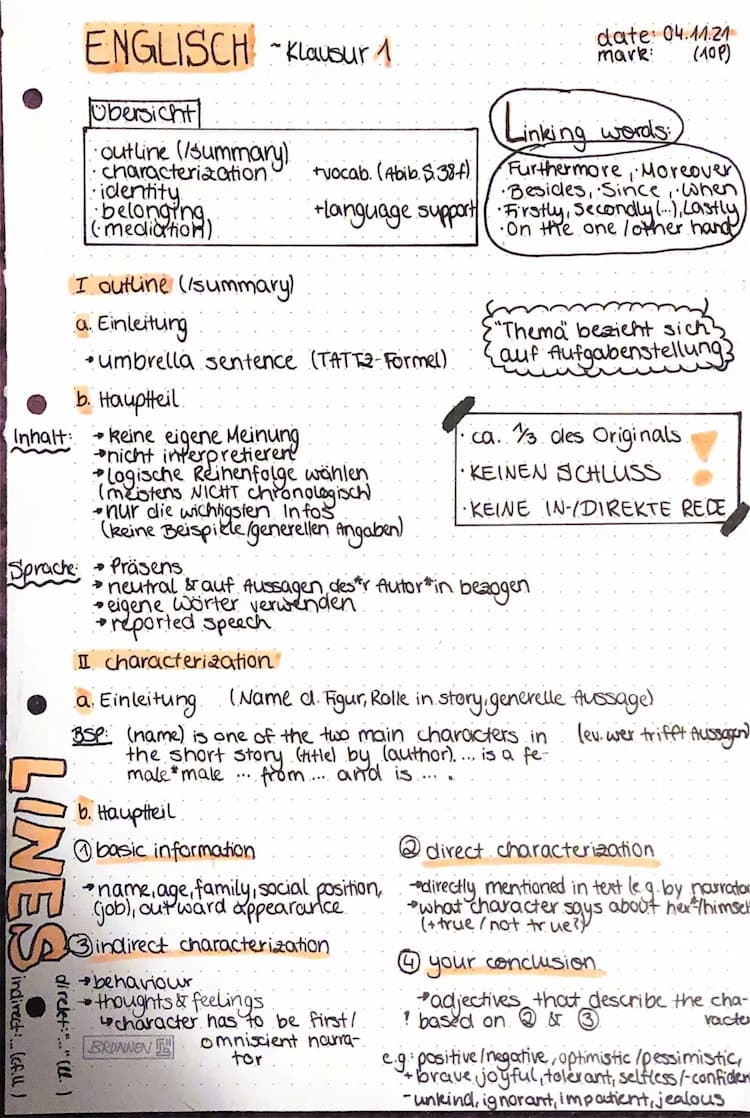 ENGLISCH ~Klausur 1
date: 04.11.21
mark: (10P)
Übersicht
· outline (/summary)
· characterization +vocab. (Abib. S.38f)
· identity
· belonging +language support
(· mediation)
Linking words:
· Furthermore, · Moreover
· Besides, · Since, · When
· Firstly, Secondly (...), Lastly
· On the one/other hand
I outline (/summary)
a. Einleitung
→ umbrella sentence (TATT2-Formel)
"Thema" bezieht sich
auf Aufgabenstellung
b. Hauptteil
Inhalt: → keine eigene Meinung
→ nicht interpretieren
→ logische Reihenfolge wählen
(meistens NICHT chronologisch)
→ nur die wichtigsten Infos
(keine Beispiele/generellen Angaben)
· ca. 1/3 des Originals !
· KEINEN SCHLUSS
· KEINE IN-/DIREKTE REDE
Sprache: → Präsens
→ neutral & auf Aussagen des*r Autor*in bezogen
→ eigene Wörter verwenden
→ reported speech
II characterization
a. Einleitung (Name d. Figur, Rolle in story, generelle Aussage)
(ev. wer trifft Aussagen)
BSP: (name) is one of the two main characters in
the short story (title) by (author). ... is a fe-
male*male ... from ... and is ... .
b. Hauptteil
① basic information
→ name, age, family, social position,
(job), outward appearance
② direct characterization
→ directly mentioned in text (e.g. by narrator
→ what character says about her*/himself
(+true/not true?)
③ indirect characterization
→ behaviour
→ thoughts & feelings
↳ character has to be first/
omniscient narra-
tor
④ your conclusion
→ adjectives that describe the cha-
racter
! based on ② & ③
e.g: positive/negative, optimistic/pessimistic,
+ brave, joyful, tolerant, selfless/-confiden
- unkind, ignorant, impatient, jealous
LINES
direkt: "..." (ll. )
indirect: ... (cf. ll. )
BRUNNEN